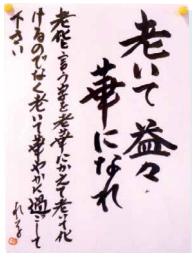 老いて 益々
華になれ
老化と言う字を老華にかえて老いて化
けるのでなく老いて華やかに過ごして
下さい